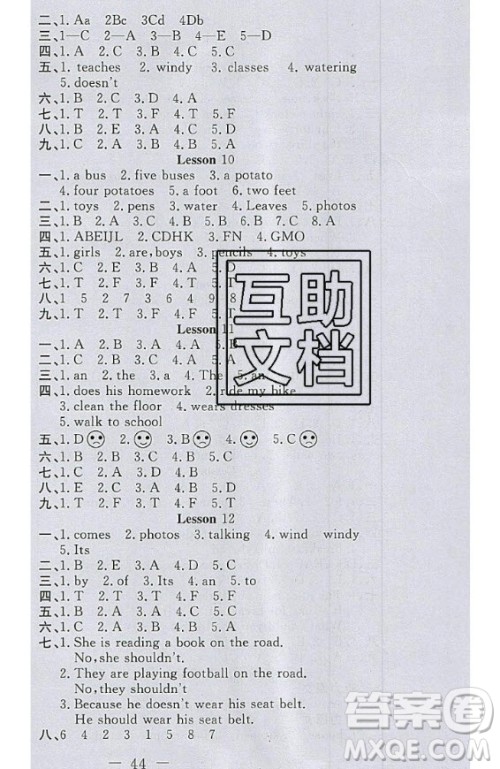 二、1. Aa 2Bc 3Cd 4Db
三、1—C 2—A 3—B 4—E 5—D
五、1. teaches 2. windy 3. classes 4. watering
5. doesn't
六、1. B 2. C 3. D 4. A
七、1. T 2. T 3. F 4. T 5. F
八、1. B 2. E 3. A 4. C 5. D
九、1. C 2. C 3. B 4. C 5. A
Lesson 10
一、1. a bus 2. five buses 3. a potato
4. four potatoes 5. a foot 6. two feet
二、1. toys 2. pens 3. water 4. Leaves 5. photos
三、1. B 2. A 3. C 4. A 5. B 6. C 7. C 8. A
四、1. ABEIJL 2. CDHK 3. FN 4. GMO
五、1. girls 2. are, boys 3. pencils 4. toys
六、1. C 2. B 3. A 4. E 5. D
七、1. T 2. F 3. T 4. T
八、1 5 2 7 3 4 9 8
Lesson 11
一、1. A 2. B 3. A 4. B 5.
二、1. C 2. C 3. A
三、1. an 2. the 3. a 4. The 5. an
四、1. does his homework 2. ride my bike
3. clean the floor 4. wears dresses
5. walk to school
五、1. D 2. 3. B 4. 5. C
六、1. B 2. C 3. A 4. D 5. A
七、1. C 2. A 3. C 4. B
八、1. E 2. C 3. D 4. B 5. A
九、1. T 2. F 3. T 4. F 5. T
Lesson 12
一、1. comes 2. photos 3. talking 4. wind windy
5. Its
二、1. C 2. B 3. C 4. A 5. A
三、1. by 2. of 3. Its 4. an 5. to
四、1. T 2. T 3. F 4. T 5. F
五、1. B 2. E 3. A 4. C 5. D
六、1. C 2. A 3. B 4. C 5. A
七、1. She is reading a book on the road.
No, she shouldn't.
2. They are playing football on the road.
No, they shouldn't.
3. Because he doesn't wear his seat belt.
He should wear his seat belt.
八、6 4 2 3 1 5 8 7
44
互助
文档
答案圈
MXQE.COM